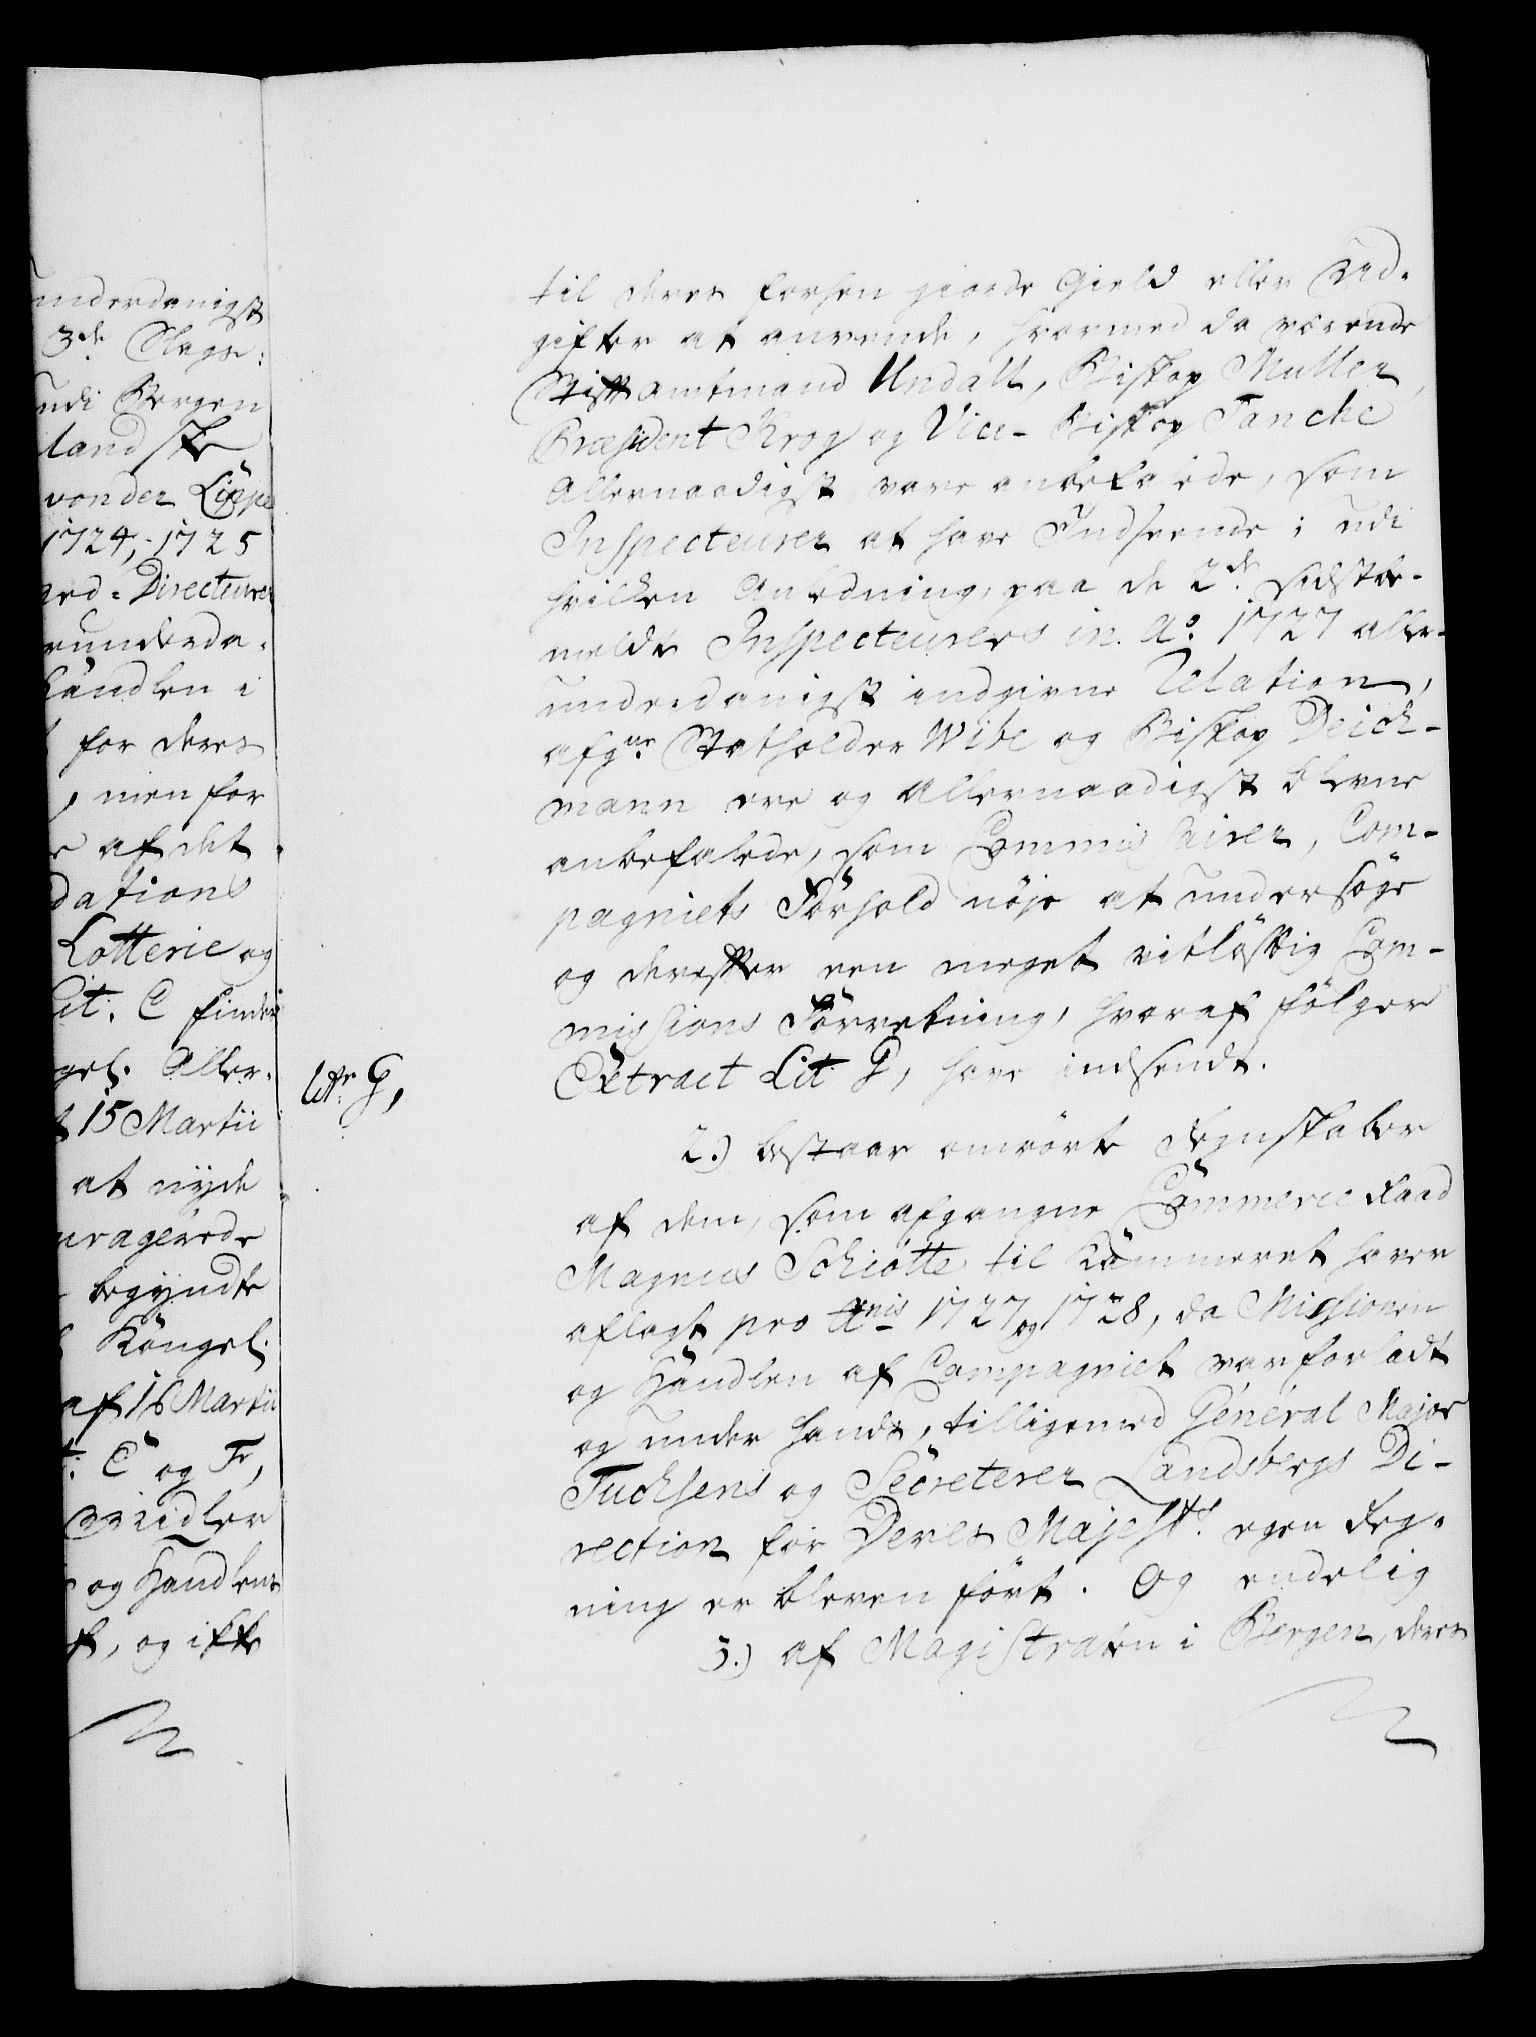 underdanigst
3de Slags:
udi Bergen
land ske
von der Lippe
1724, 1725
Directeurer
runderda-
Handlen i
for deres
, men for
af det
dations
Lotterie og
Lit. C finder
gel. Aller-
15 Martii
at nyde
uragerede
begyndte
Kongel.
af 16 Martii
C og F,
Midler
og Handlens
, og ikke
til deres forhen giorde Gield eller Ud-
gifter at anvende, hvormed da værende
Stiftamtmand Undall, Biskop Muller,
Præsident Krog og Vice-Biskop Tanche
Allernaadigst vare anbefalede, som
Inspecteurer at have Indseende; udi
hvilken Anledning, paa de 2de sidstbe-
meldte Inspecteurers in Ao. 1727 aller-
underdanigst indgivne Relation,
afgne Statholder Wibe og Biskop Deich-
mann ere og Allernaadigst blevne
anbefalede, som Commissairer, Com-
pagniets Forhold nöje at undersöge
og derefter een meget vitlöftig Com-
missions Forretning, hvoraf fölger
Extract Lit G, have indsendt.
Littr G,
2.) bestaar omrörte Regnskaber
af dem, som afgangne Commerce Raad
Magnus Schiötte til Kammeret haver
aflagt pro Anis 1727 og 1728, da Missionen
og Handlen af Compagniet var forladt
og under hands, tilligemed General Major
Fuchsens og Secreterer Landsbergs Di-
rection for Deres Majests. egen Reg-
ning er bleven fört. Og endelig
3.) af Magistraten i Bergen, deres